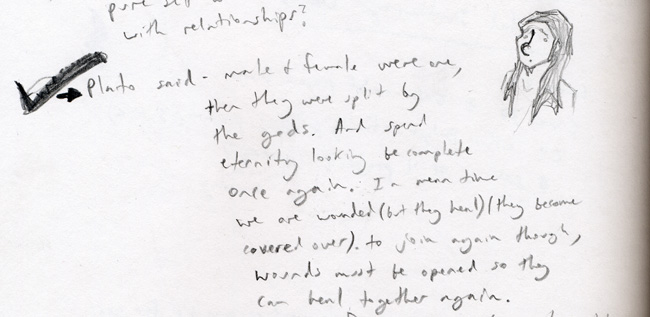 pure
with relationships?
Plato said - male & female were one,
then they were split by
the gods. And spend
eternity looking be complete
once again. In mean time
we are wounded (but they heal) (they become
covered over). to join again though,
wounds must be opened so they
can heal together again.